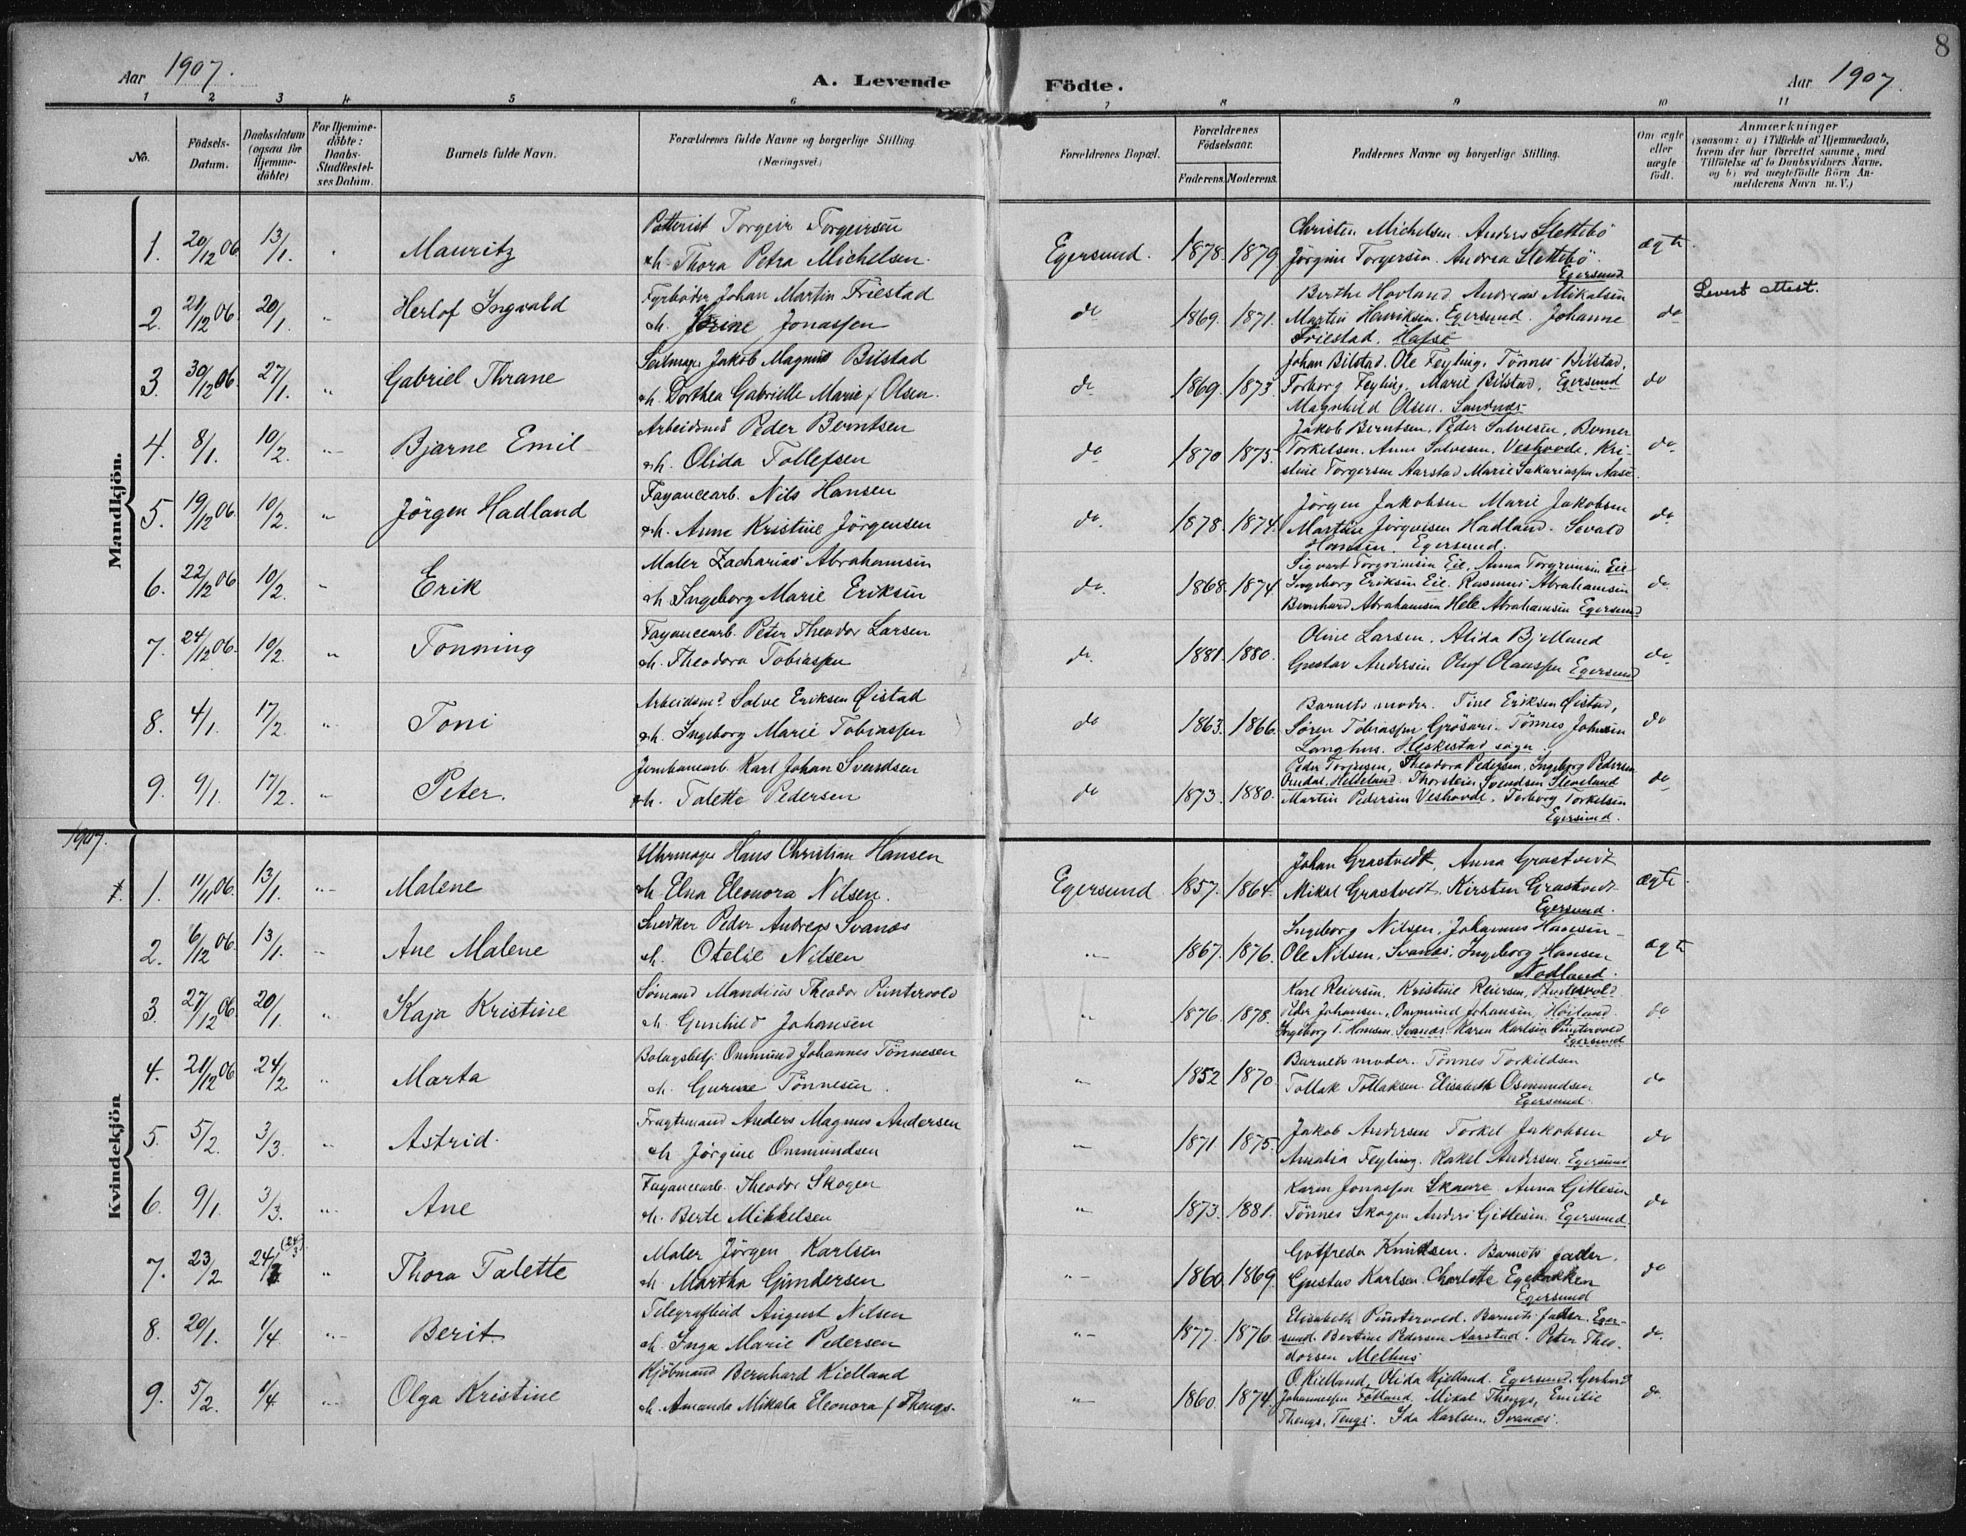 8
Aar 1907.
A. Levende Födte.
Aar 1907.
1 2 3 4 5 6 7 8 9 10 11
No.
Födsels-Datum.
Daabsdatum (ogsaa for Hjemme-döbte)
For Hjemme-döbte: Daabs-Stadfæstel-ses Datum.
Barnets fulde Navn.
Forældrenes fulde Navne og borgerlige Stilling (Næringsvei.)
Forældrenes Bopæl.
Forældrenes Födselsaar.
Faderens. Moderens.
Faddernes Navne og borgerlige Stilling.
Om ægte eller uægte födt.
Anmærkninger
(saasom: a) i Tilfælde af Hjemmedaab,
hvem der har forrettet samme, med
Tilföielse af to Daabsvidners Navne,
og b) ved uægtefödte Börn An-
melderens Navn m. V.)
Mandkjön.
1. 20/12 06. 13/1. Mauritz
Torgeir Torgeirsen
h. Thora Petra Michelsen.
Egersund. 1878. 1879
Christen Michelsen. Anders Slettebö
Jörgine Torgersen. Andrea Slettebö
Egersund
ægte.
2. 21/12 06. 20/1. Herlof Ingvald
Fyrböder Johan Martin Friestad
h. Jonassen
do 1869. 1871.
Berthe Hovland. Andreas Mikalsen
Martin Henriksen. Egersund. Johanne
Friestad. Hafsö
do
Levert attest.
3. 30/12 06. 27/1. Gabriel Thrane
Seilmager Jakob Magnus Bilstad
h. Dorthea Gabrielle Marie f. Olsen.
do 1869. 1873.
Johan Bilstad. Ole Feyling. Tönnes Bilstad,
Torborg Feyling. Marie Bilstad, Egersund
Magnhild Olsen. Sandnes
do
4. 8/1. 10/2. Bjarne Emil
Arbeidsmd Peder Berntsen
h. Olida Tollefsen
do 1870 1875.
Jakob Berntsen, Peder Salvesen, Berner
Torkelsen. Anne Salvesen. Veshovde. Kri-
stine Torgersen Aarstad Marie Sakariassen Aase
do.
5. 19/12 06. 10/2. Jörgen Hadland
Fayancearb. Nils Hansen
h. Anne Kristine Jörgensen
do. 1878. 1874.
Jörgen Jakobsen Marie Jakobsen
Martin Jörgensen Hadland. Sevald
Hansen. Egersund.
do
6. 22/12 06 10/2. Erik
Maler Zacharias Abrahamsen
h Ingeborg Marie Eriksen
do. 1868. 1874
Sigvart Torgrimsen Eie. Anna Torgrimsen Eie
Ingeborg Eriksen Eie. Rasmus Abrahamsen
Bernhard Abrahamsen Hele Abrahamsen Egersund
do
7. 24/12 06. 10/2. Tonning
Fayancearb. Peter Theodor Larsen
h. Theodora Tobiassen
do. 1881. 1880.
Oline Larsen. Alida Bjelland
Gustav Andersen Oluf Olaussen Egersund
do
8. 4/1. 17/2. Toni
Arbeidsmd. Salve Eriksen Öistad
h. Ingeborg Marie Tobiassen
do 1863. 1866.
Barnets moder. Tine Eriksen Öistad,
Sören Tobiassen Grösari. Tönnes Johnsen
Langhus. Heskestad sogn.
do
9. 9/1. 17/2. Peter.
Jernbanearb. Karl Johan Svendsen
h. Talette Pedersen
do 1873. 1880.
Peder Torjusen, Theodora Pedersen, Ingeborg Pedersen
Omdal. Helleland. Thorstein Svendsen Sleveland
Martin Pedersen Veshovde. Torborg Torkelsen
Egersund.
do
1907.
Kvindekjön
1. 11/11 06. 13/1. Malene
Uhrmager Hans Christian Hansen
h Elna Eleonora Nilsen.
Egersund 1857. 1864.
Johan Grastvedt, Anna Grastvedt
Mikal Grastvedt. Kirsten Grastvedt
Egersund.
ægte.
2. 6/12 06. 13/1. Ane Malene
Snedker Peder Andreas Svanæs
h. Otelie Nilsen
1867. 1876.
Ingeborg Nilsen, Johannes Hansen
Ole Nilsen, Svanæs. Ingeborg Hansen
Nodland.
ægte
3. 27/12 06. 20/1. Kaja Kristine
Sömand Mandius Theodor Puntervold
h Gunhild Johansen
1876. 1878.
Karl Reiersen. Kristine Reiersen, Puntervold
Peder Johansen, Ommund Johansen, Höiland.
Ingeborg T. Hansen. Svanæs. Karen Karlsen Puntervold
Egersund
do
4. 21/12 06 24/2 Marta
Bolagsbetj. Ommund Johannes Tönnesen
h. Gurine Tönnesen.
1852 1870.
Barnets moder. Tönnes Torkildsen
Tollak Tollaksen. Elisabeth Osmundsen
Egersund.
do
5. 5/2. 3/3. Astrid.
Fragtemand Anders Magnus Andersen
h Jörgine Ommundsen
1871 1875.
Jakob Andersen Torkel Jakobsen
Amalia Feyling. Rakel Andersen. Egersund
do
6. 9/1. 3/3. Ane
Fayancearb. Theodor Skogen
h. Berte Mikkelsen
1873. 1881.
Karen Jonassen Skaare. Anna Gitlesen
Tönnes Skogen Anders Gitlesen. Egersund.
do
7. 23/2 24/3 (24/3) Thora Talette
Maler Jörgen Karlsen
h. Martha Gundersen
1860. 1869.
Gotfreda Knudsen. Barnets fader.
Gustav Karlsen. Charlotte Egebakken
Egersund
do
8. 20/1. 1/4 Berit
Telegrafbud August Nilsen
h. Inga Marie Pedersen
1877. 1876.
Elisabeth Puntervold. Barnets fader. Eger-
sund. Bertine Pedersen Aarstad. Peter Theo-
dorsen Melhus
do.
9. 5/2. 1/4 Olga Kristine
Kjöbmand Bernhard Kielland
h. Amanda Mikala Eleonora f. Thengs.
1860. 1874.
O. Kielland, Olida Kielland. Egersund. Gerhard
Johannessen Fotland. Mikal Thengs, Emilie
Thengs, Tengs. Ida Karlsen, Svanæs.
do.